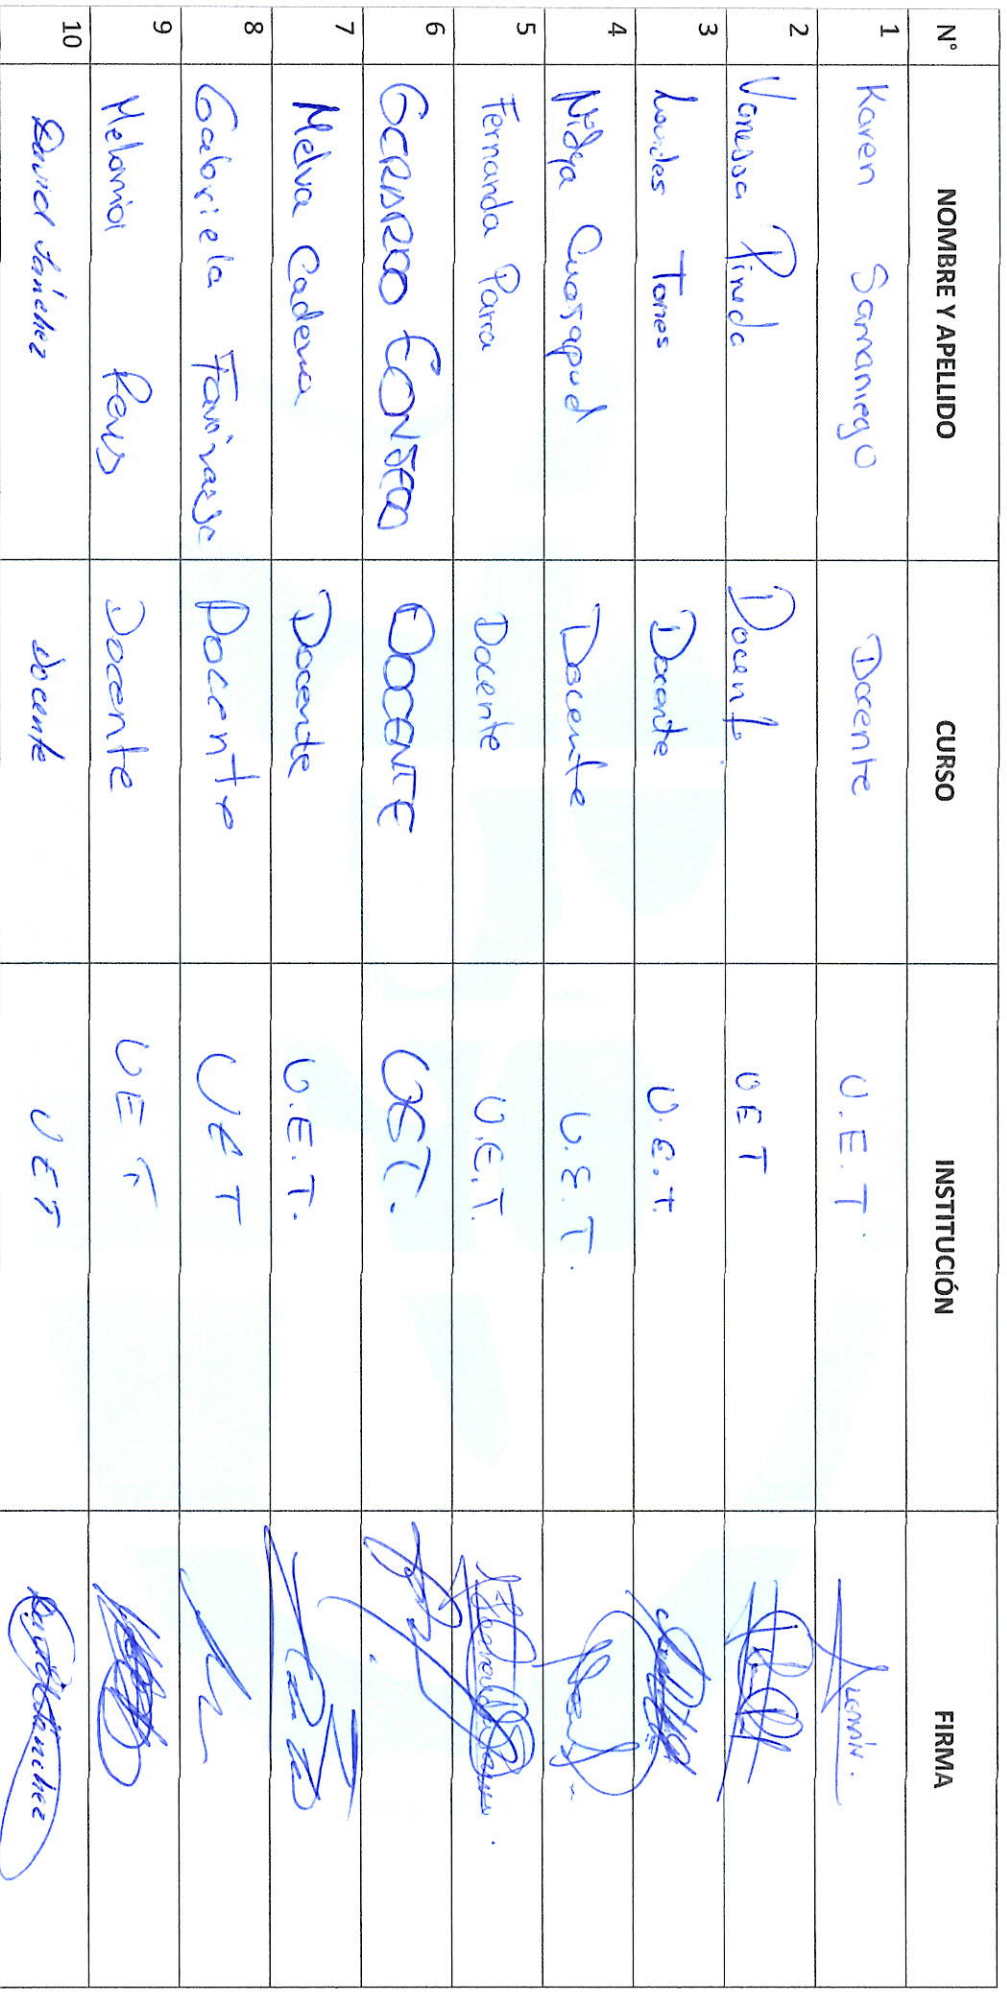 N° NOMBRE Y APELLIDO CURSO INSTITUCIÓN FIRMA
1 Karen Samaniego Docente U.E.T.
2 Vanessa Pineda Docente UET
3 Lourdes Torres Docente U.E.T.
4 Nidya Cuasapud Docente U.E.T.
5 Fernanda Parra Docente U.E.T.
6 Docente
7 Melva Cadena Docente U.E.T.
8 Gabriela Docente UET
9 Melania Docente UET
10 David Sánchez docente UET David Sánchez